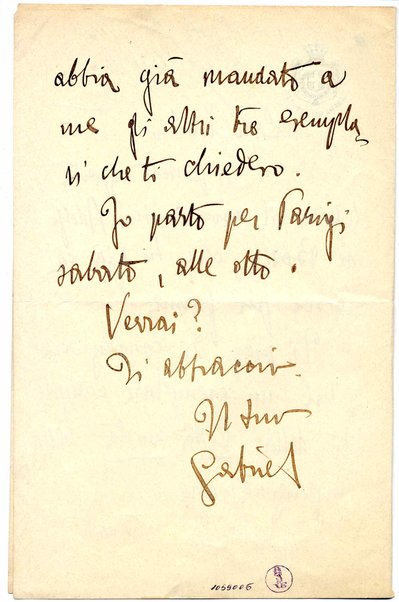 abbia già mandato a
me gi altri tre exempla
ri che ti chiedero.
Io parto per Parigi
sabato, alle otto.
Verrai?
Ti abbraccio.
Il tuo
Gabriel
1099006